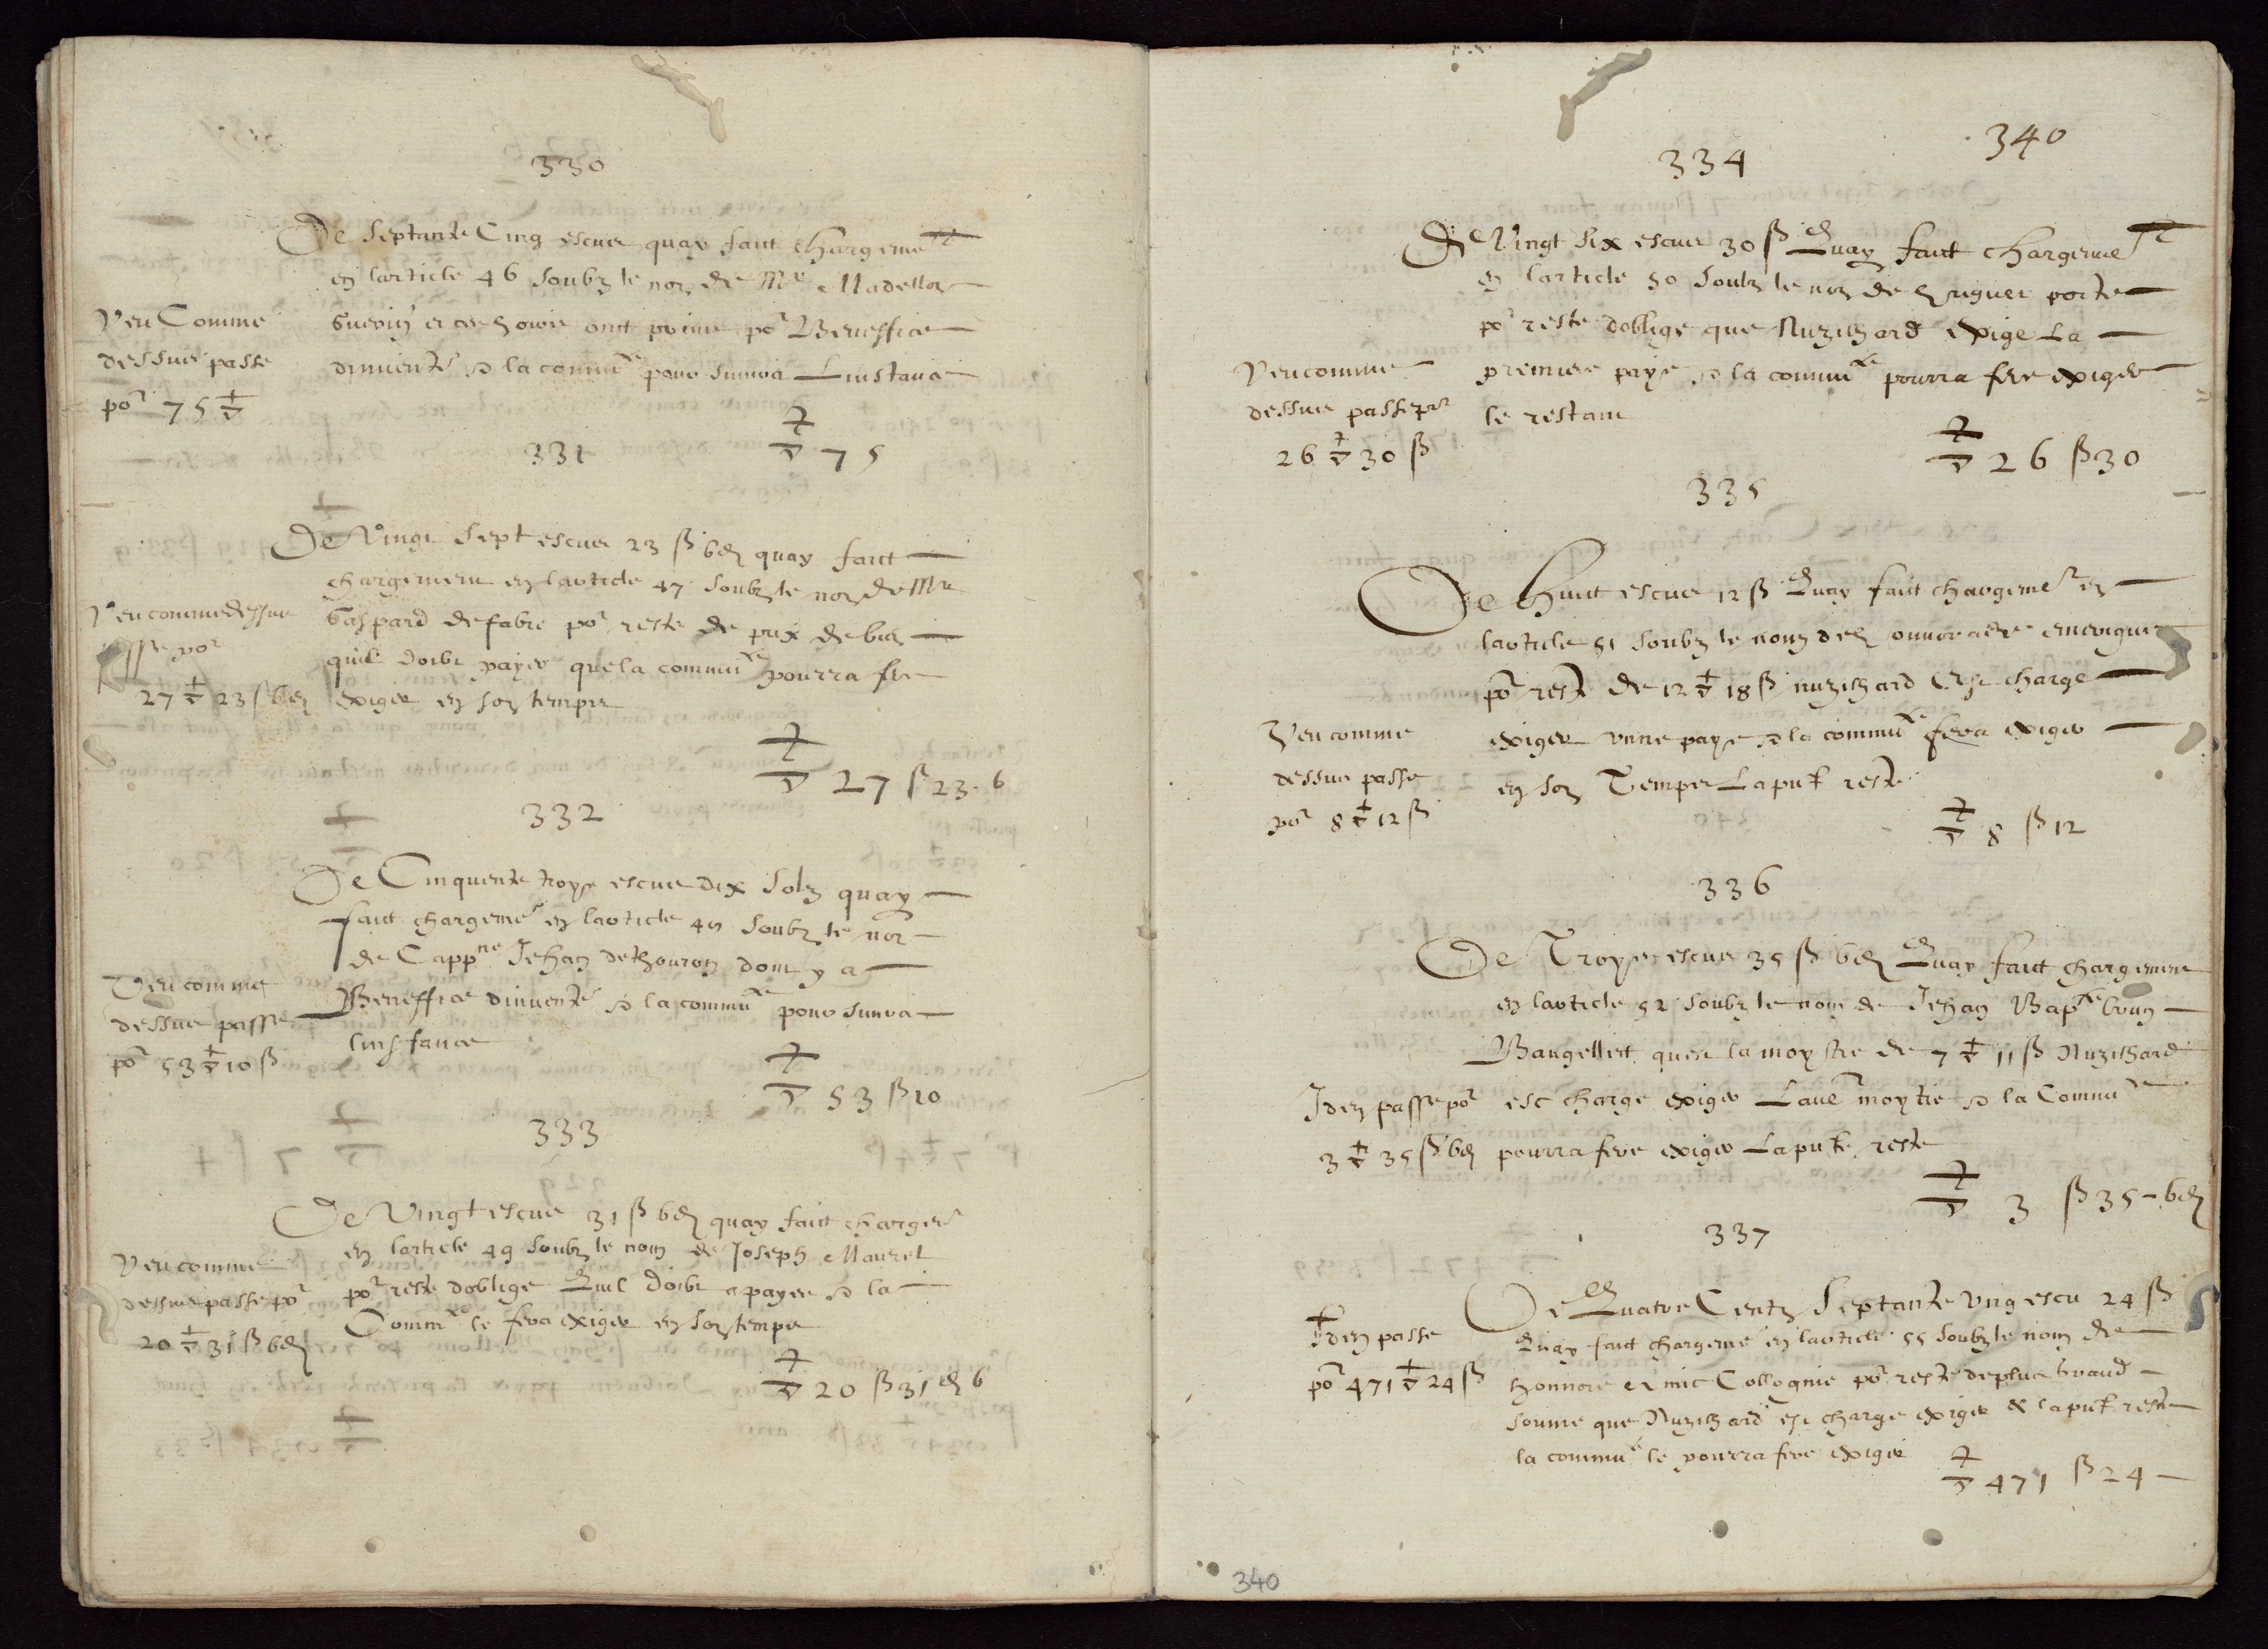 330
De Septante Cinq escus quay faict chargeme
en larticle 46 soubz le nom de Me Madellon
Guerin et ces hoirs ont prins por Beneffice
dinventre la commute pour suivra Linstance
Veu Comme
dessus passe
por 75
75
331
De Vingt Sept escus 23 ß 6d quay faict
chargement en larticle 47 soubz le nom de Me
Gaspard de fabre por reste de prix de
quil doibt payer que la commute pourra fere
exiger en son temps
Veu comme dessus
passe por
27 23 ß 6d
27 ß 23 - 6
332
De Cinquente troys escus dix solz quay
faict chargeme en larticle soubz le nom
de Cappne Jehan de thouron dont y a
Beneffice dinventre la commute pour suivra
linstance
Veu comme
dessus passe
por 53 10 ß
53 ß 10
333
De Vingt escus 31 ß 6d quay faict charger
en larticle 49 soubz le nom de Joseph Maurel
por reste doblige Quil doibt a payer la
Commte le fera exiger en son temps
Veu comme
dessus passe por
20 31 ß 6d
20 ß 31 d 6
340
334
De Vingt six escus 30 ß Quay faict chargeme
en larticle 50 soubz le nom de porte
por reste doblige que Nuzichard exige La
premiere paye la commute pourra fere exiger
le restant
Veu comme
dessus passe por
26 30 ß
26 ß 30
335
De huict escus 12 ß Quay faict chargemet en
larticle 51 soubz le nom
por reste de 12 18 ß nuzichard Est charge
exiger unne paye la commute fera exiger
en son Temps La pnte reste
Veu comme
dessus passe
por 8 12 ß
8 ß 12
336
De Troys escus 35 ß 6d Quay faict chargement
en larticle 52 soubz le nom de Jehan Bapte brun
quest la moytie de 7 11 ß Nuzichard
est charge exiger Laut moytie la Commute
pourra fere exiger La pnte reste
Iden passe por
3 35 ß 6d
3 ß 35 - 6d
337
De Quatre Centz Septante ung escu 24 ß
Quay faict chargeme en larticle 55 soubz le nom de
honnore et mic Collognie por reste de plus grand
somme que Nuzichard est charge exiger & la pnte reste
la commute le pourra fere exiger
Iden passe
por 471 24 ß
471 ß 24
340